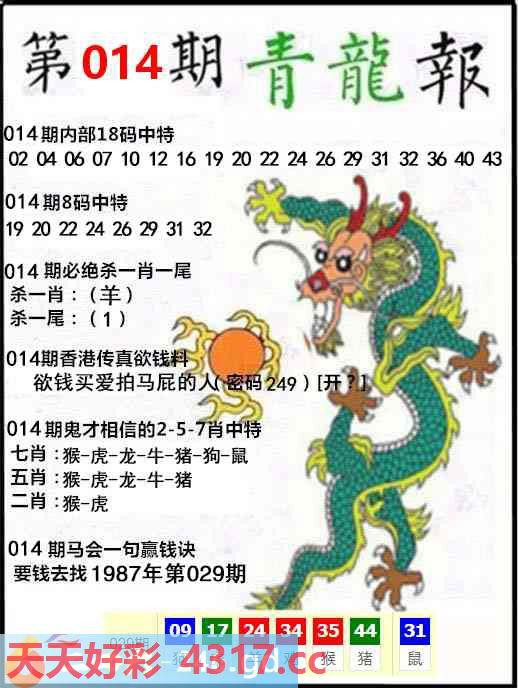 第014期 青龍報
014期内部18码中特
02 04 06 07 10 12 16 19 20 22 24 26 29 31 32 36 40 43
014期8码中特
19 20 22 24 26 29 31 32
014 期必绝杀一肖一尾
杀一肖:（羊）
杀一尾:（1）
014期香港传真欲钱料
欲钱买爱拍马屁的人(密码249)[开?]
014期鬼才相信的2-5-7肖中特
七肖: 猴-虎-龙-牛-猪-狗-鼠
五肖: 猴-虎-龙-牛-猪
二肖: 猴-虎
014 期马会一句赢钱诀
要钱去找1987年第029期
09 17 24 34 35 44 31
029期 羊 鸡 猴 猪 鼠
天天好彩-4317.cc